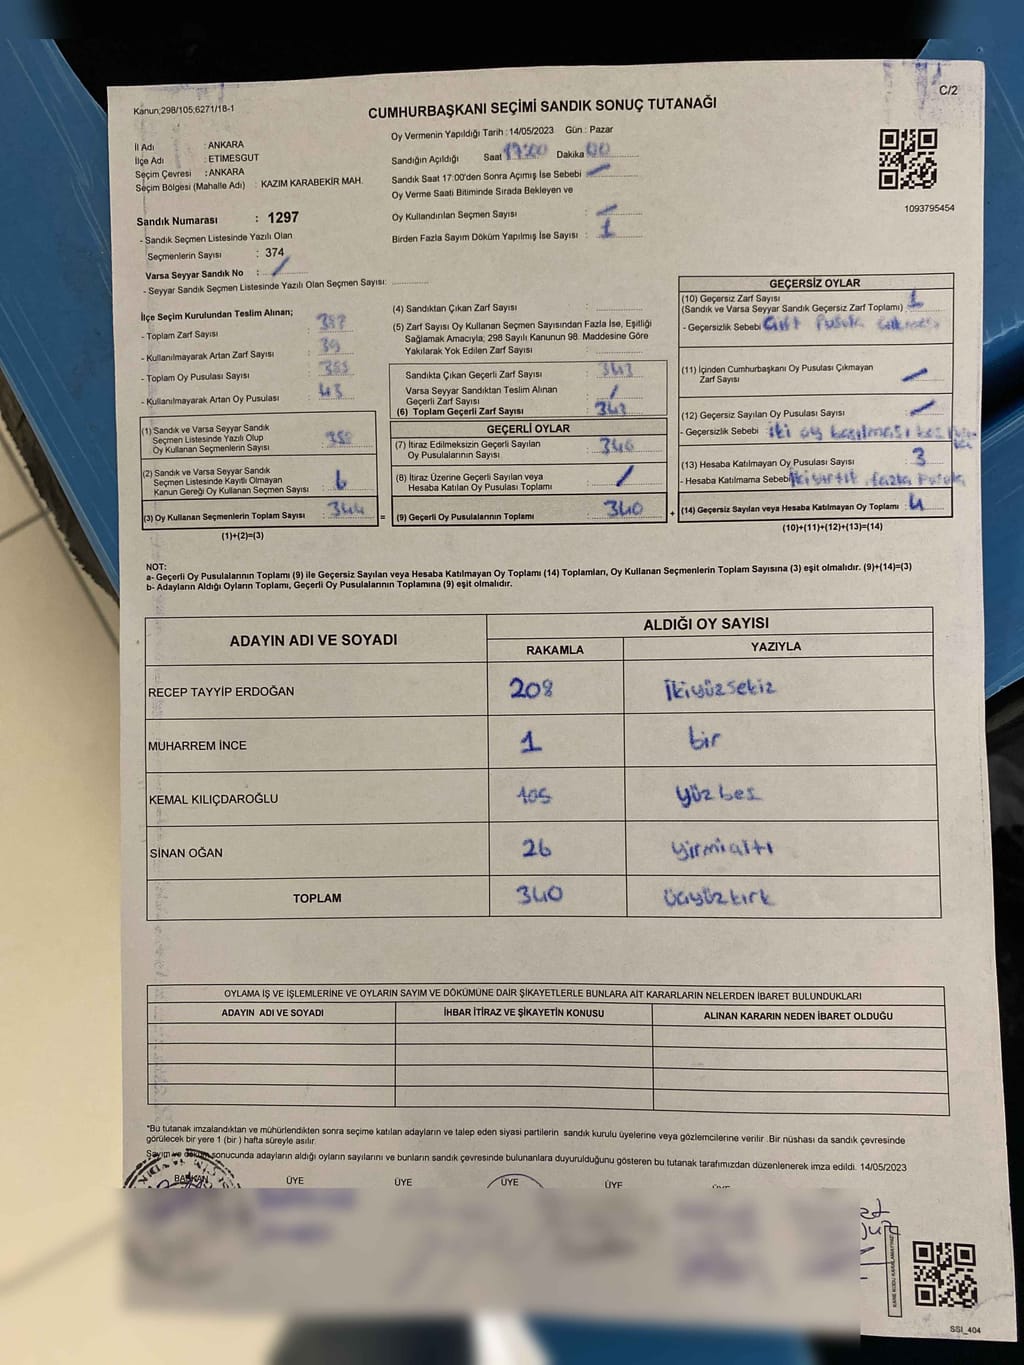 Kanun;298/105;6271/18-1
C/2
CUMHURBAŞKANI SEÇİMİ SANDIK SONUÇ TUTANAĞI
İl Adı : ANKARA
İlçe Adı : ETİMESGUT
Seçim Çevresi : ANKARA
Seçim Bölgesi (Mahalle Adı) : KAZIM KARABEKİR MAH.
Sandık Numarası : 1297
- Sandık Seçmen Listesinde Yazılı Olan
Seçmenlerin Sayısı : 374
Varsa Seyyar Sandık No : /
- Seyyar Sandık Seçmen Listesinde Yazılı Olan Seçmen Sayısı:
Oy Vermenin Yapıldığı Tarih : 14/05/2023 Gün : Pazar
Sandığın Açıldığı Saat Dakika 00
Sandık Saat 17:00'den Sonra Açımış İse Sebebi
Oy Verme Saati Bitiminde Sırada Bekleyen ve
Oy Kullandırılan Seçmen Sayısı :
Birden Fazla Sayım Döküm Yapılmış İse Sayısı : 1
1093795454
İlçe Seçim Kurulundan Teslim Alınan;
- Toplam Zarf Sayısı :
- Kullanılmayarak Artan Zarf Sayısı : 39
- Toplam Oy Pusulası Sayısı :
- Kullanılmayarak Artan Oy Pusulası : 43
(1) Sandık ve Varsa Seyyar Sandık
Seçmen Listesinde Yazılı Olup
Oy Kullanan Seçmenlerin Sayısı :
(2) Sandık ve Varsa Seyyar Sandık
Seçmen Listesinde Kayıtlı Olmayan
Kanun Gereği Oy Kullanan Seçmen Sayısı : 6
(3) Oy Kullanan Seçmenlerin Toplam Sayısı : 344
(1)+(2)=(3)
(4) Sandıktan Çıkan Zarf Sayısı :
(5) Zarf Sayısı Oy Kullanan Seçmen Sayısından Fazla İse, Eşitliği
Sağlamak Amacıyla; 298 Sayılı Kanunun 98. Maddesine Göre
Yakılarak Yok Edilen Zarf Sayısı :
Sandıkta Çıkan Geçerli Zarf Sayısı : 343
Varsa Seyyar Sandıktan Teslim Alınan
Geçerli Zarf Sayısı : /
(6) Toplam Geçerli Zarf Sayısı : 343
GEÇERLİ OYLAR
(7) İtiraz Edilmeksizin Geçerli Sayılan
Oy Pusulalarının Sayısı : 340
(8) İtiraz Üzerine Geçerli Sayılan veya
Hesaba Katılan Oy Pusulası Toplamı : /
= (9) Geçerli Oy Pusulalarının Toplamı : 340 +
GEÇERSİZ OYLAR
(10) Geçersiz Zarf Sayısı : 1
(Sandık ve Varsa Seyyar Sandık Geçersiz Zarf Toplamı)
- Geçersizlik Sebebi Çift Pusula
(11) İçinden Cumhurbaşkanı Oy Pusulası Çıkmayan
Zarf Sayısı :
(12) Geçersiz Sayılan Oy Pusulası Sayısı :
- Geçersizlik Sebebi : iki oy basılması
(13) Hesaba Katılmayan Oy Pusulası Sayısı : 3
- Hesaba Katılmama Sebebi fazla Pusula
(14) Geçersiz Sayılan veya Hesaba Katılmayan Oy Toplamı : 4
(10)+(11)+(12)+(13)=(14)
NOT:
a- Geçerli Oy Pusulalarının Toplamı (9) ile Geçersiz Sayılan veya Hesaba Katılmayan Oy Toplamı (14) Toplamları, Oy Kullanan Seçmenlerin Toplam Sayısına (3) eşit olmalıdır. (9)+(14)=(3)
b- Adayların Aldığı Oyların Toplamı, Geçerli Oy Pusulalarının Toplamına (9) eşit olmalıdır.
ADAYIN ADI VE SOYADI
ALDIĞI OY SAYISI
RAKAMLA YAZIYLA
RECEP TAYYİP ERDOĞAN 208 İkiyüzsekiz
MUHARREM İNCE 1 bir
KEMAL KILIÇDAROĞLU 105 yüzbeş
SİNAN OĞAN 26 yirmialtı
TOPLAM 340 üçyüzkırk
OYLAMA İŞ VE İŞLEMLERİNE VE OYLARIN SAYIM VE DÖKÜMÜNE DAİR ŞİKAYETLERLE BUNLARA AİT KARARLARIN NELERDEN İBARET BULUNDUKLARI
ADAYIN ADI VE SOYADI İHBAR İTİRAZ VE ŞİKAYETİN KONUSU ALINAN KARARIN NEDEN İBARET OLDUĞU
*Bu tutanak imzalandıktan ve mühürlendikten sonra seçime katılan adayların ve talep eden siyasi partilerin sandık kurulu üyelerine veya gözlemcilerine verilir. Bir nüshası da sandık çevresinde
görülecek bir yere 1 (bir) hafta süreyle asılır.
Sayım ve döküm sonucunda adayların aldığı oyların sayılarını ve bunların sandık çevresinde bulunanlara duyurulduğunu gösteren bu tutanak tarafımızdan düzenlenerek imza edildi. 14/05/2023
BAŞKAN ÜYE ÜYE ÜYE ÜYE
KARE KODU KARALAMAYINIZ
SSI_404